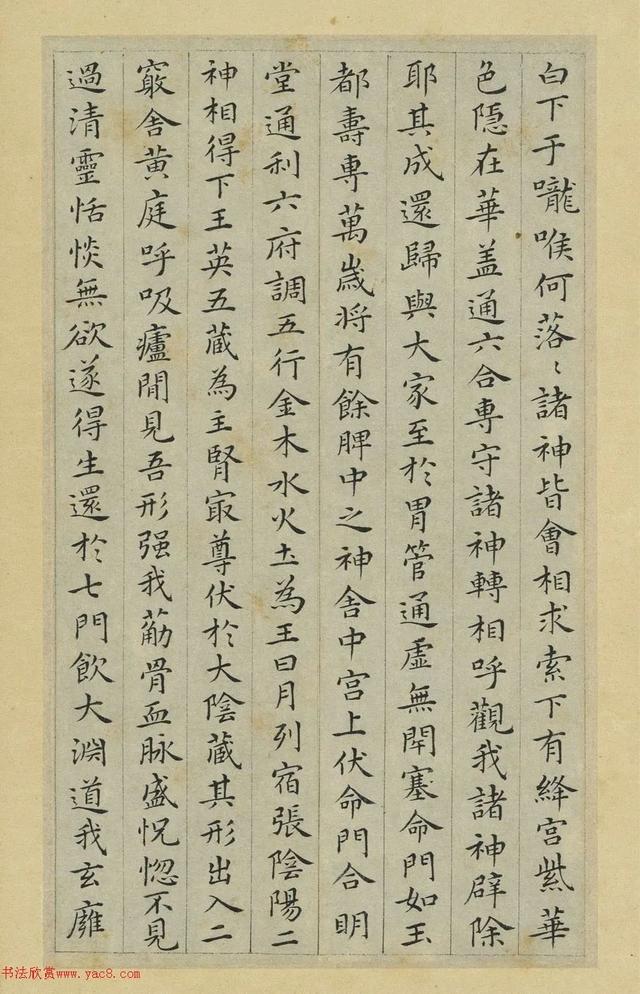 白下于嚨喉何落〻諸神皆會相求索下有絳宮紫華
色隱在華盖通六合專守諸神轉相呼觀我諸神辟除
耶其成還歸與大家至於胃管通虛無閉塞命門如玉
都壽專萬歲将有餘脾中之神舍中宮上伏命門合明
堂通利六府調五行金木水火土為王日月列宿張陰陽二
神相得下王英五藏為主腎㝡尊伏於大陰藏其形出入二
竅舍黄庭呼吸廬間見吾形强我茄骨血脉盛怳惚不見
過清靈恬惔無欲遂得生還於七門飲大淵道我玄廱
书法欣赏www.yac8.com